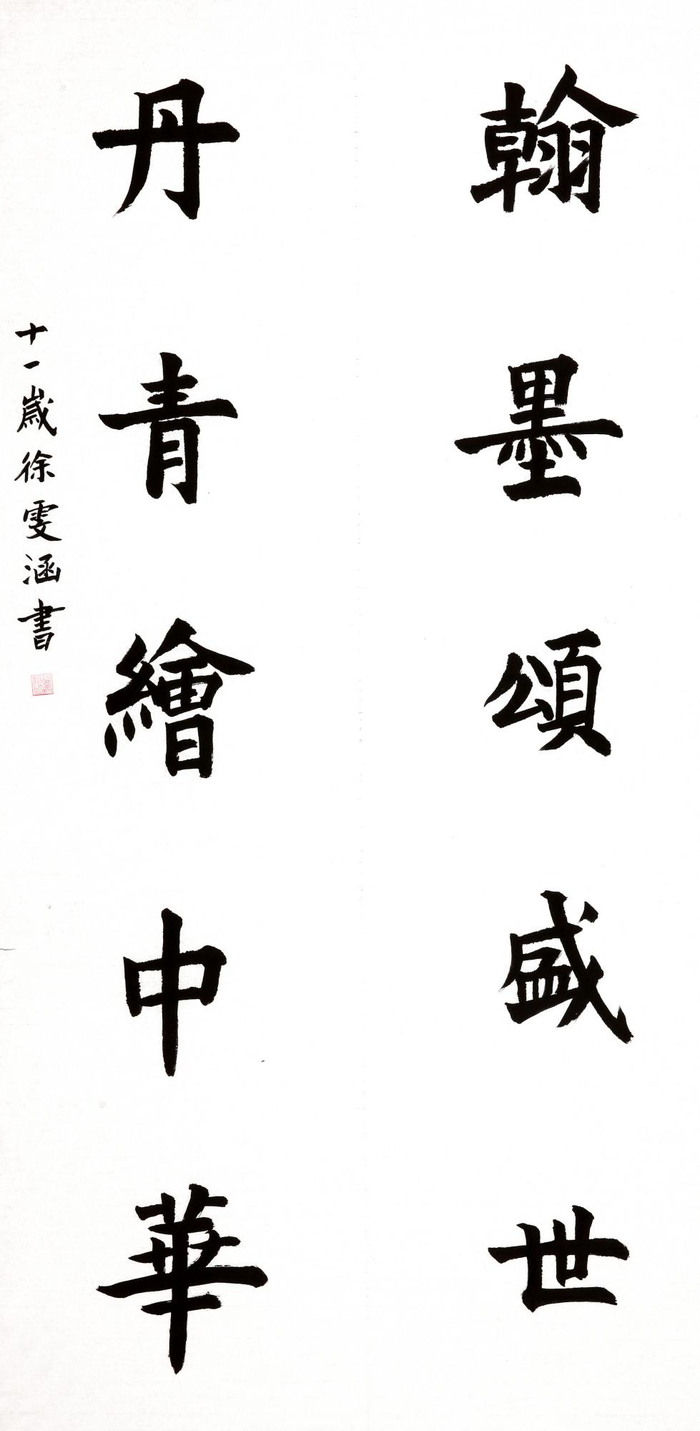 翰墨頌盛世
丹青繪中華
十一歲徐雯涵書